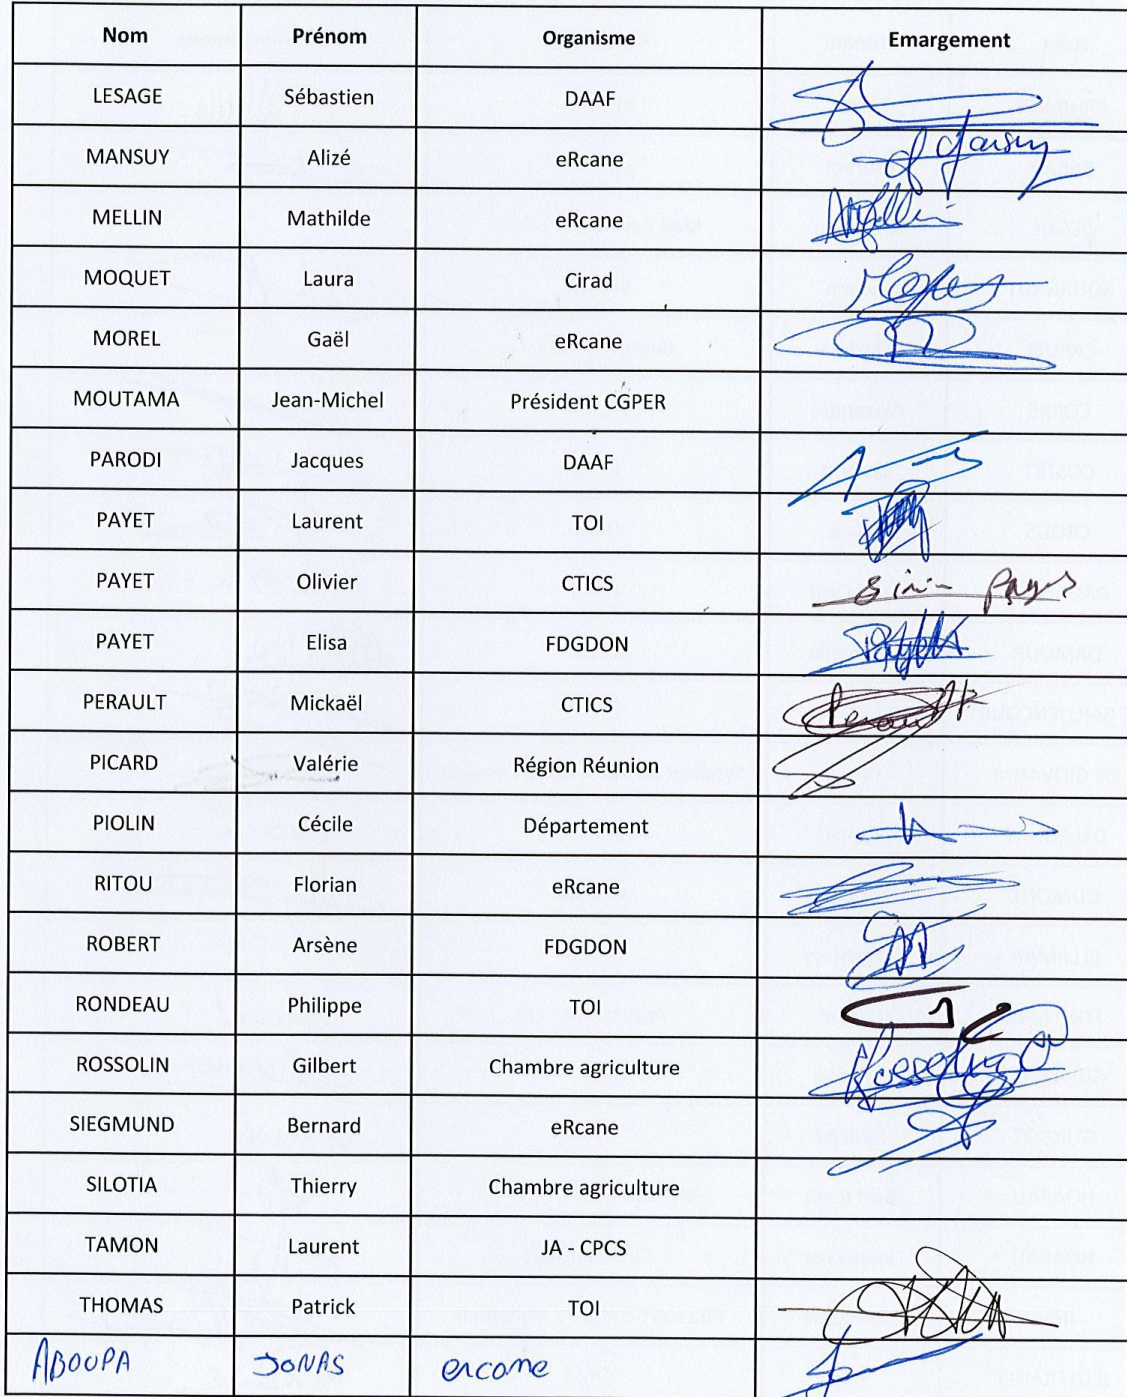 Nom Prénom Organisme Emargement
LESAGE Sébastien DAAF
MANSUY Alizé eRcane
MELLIN Mathilde eRcane Mellin
MOQUET Laura Cirad
MOREL Gaël eRcane
MOUTAMA Jean-Michel Président CGPER
PARODI Jacques DAAF
PAYET Laurent TOI
PAYET Olivier CTICS
PAYET Elisa FDGDON
PERAULT Mickaël CTICS
PICARD Valérie Région Réunion
PIOLIN Cécile Département
RITOU Florian eRcane
ROBERT Arsène FDGDON
RONDEAU Philippe TOI
ROSSOLIN Gilbert Chambre agriculture
SIEGMUND Bernard eRcane
SILOTIA Thierry Chambre agriculture
TAMON Laurent JA - CPCS
THOMAS Patrick TOI
ABOUPA JONAS ercane